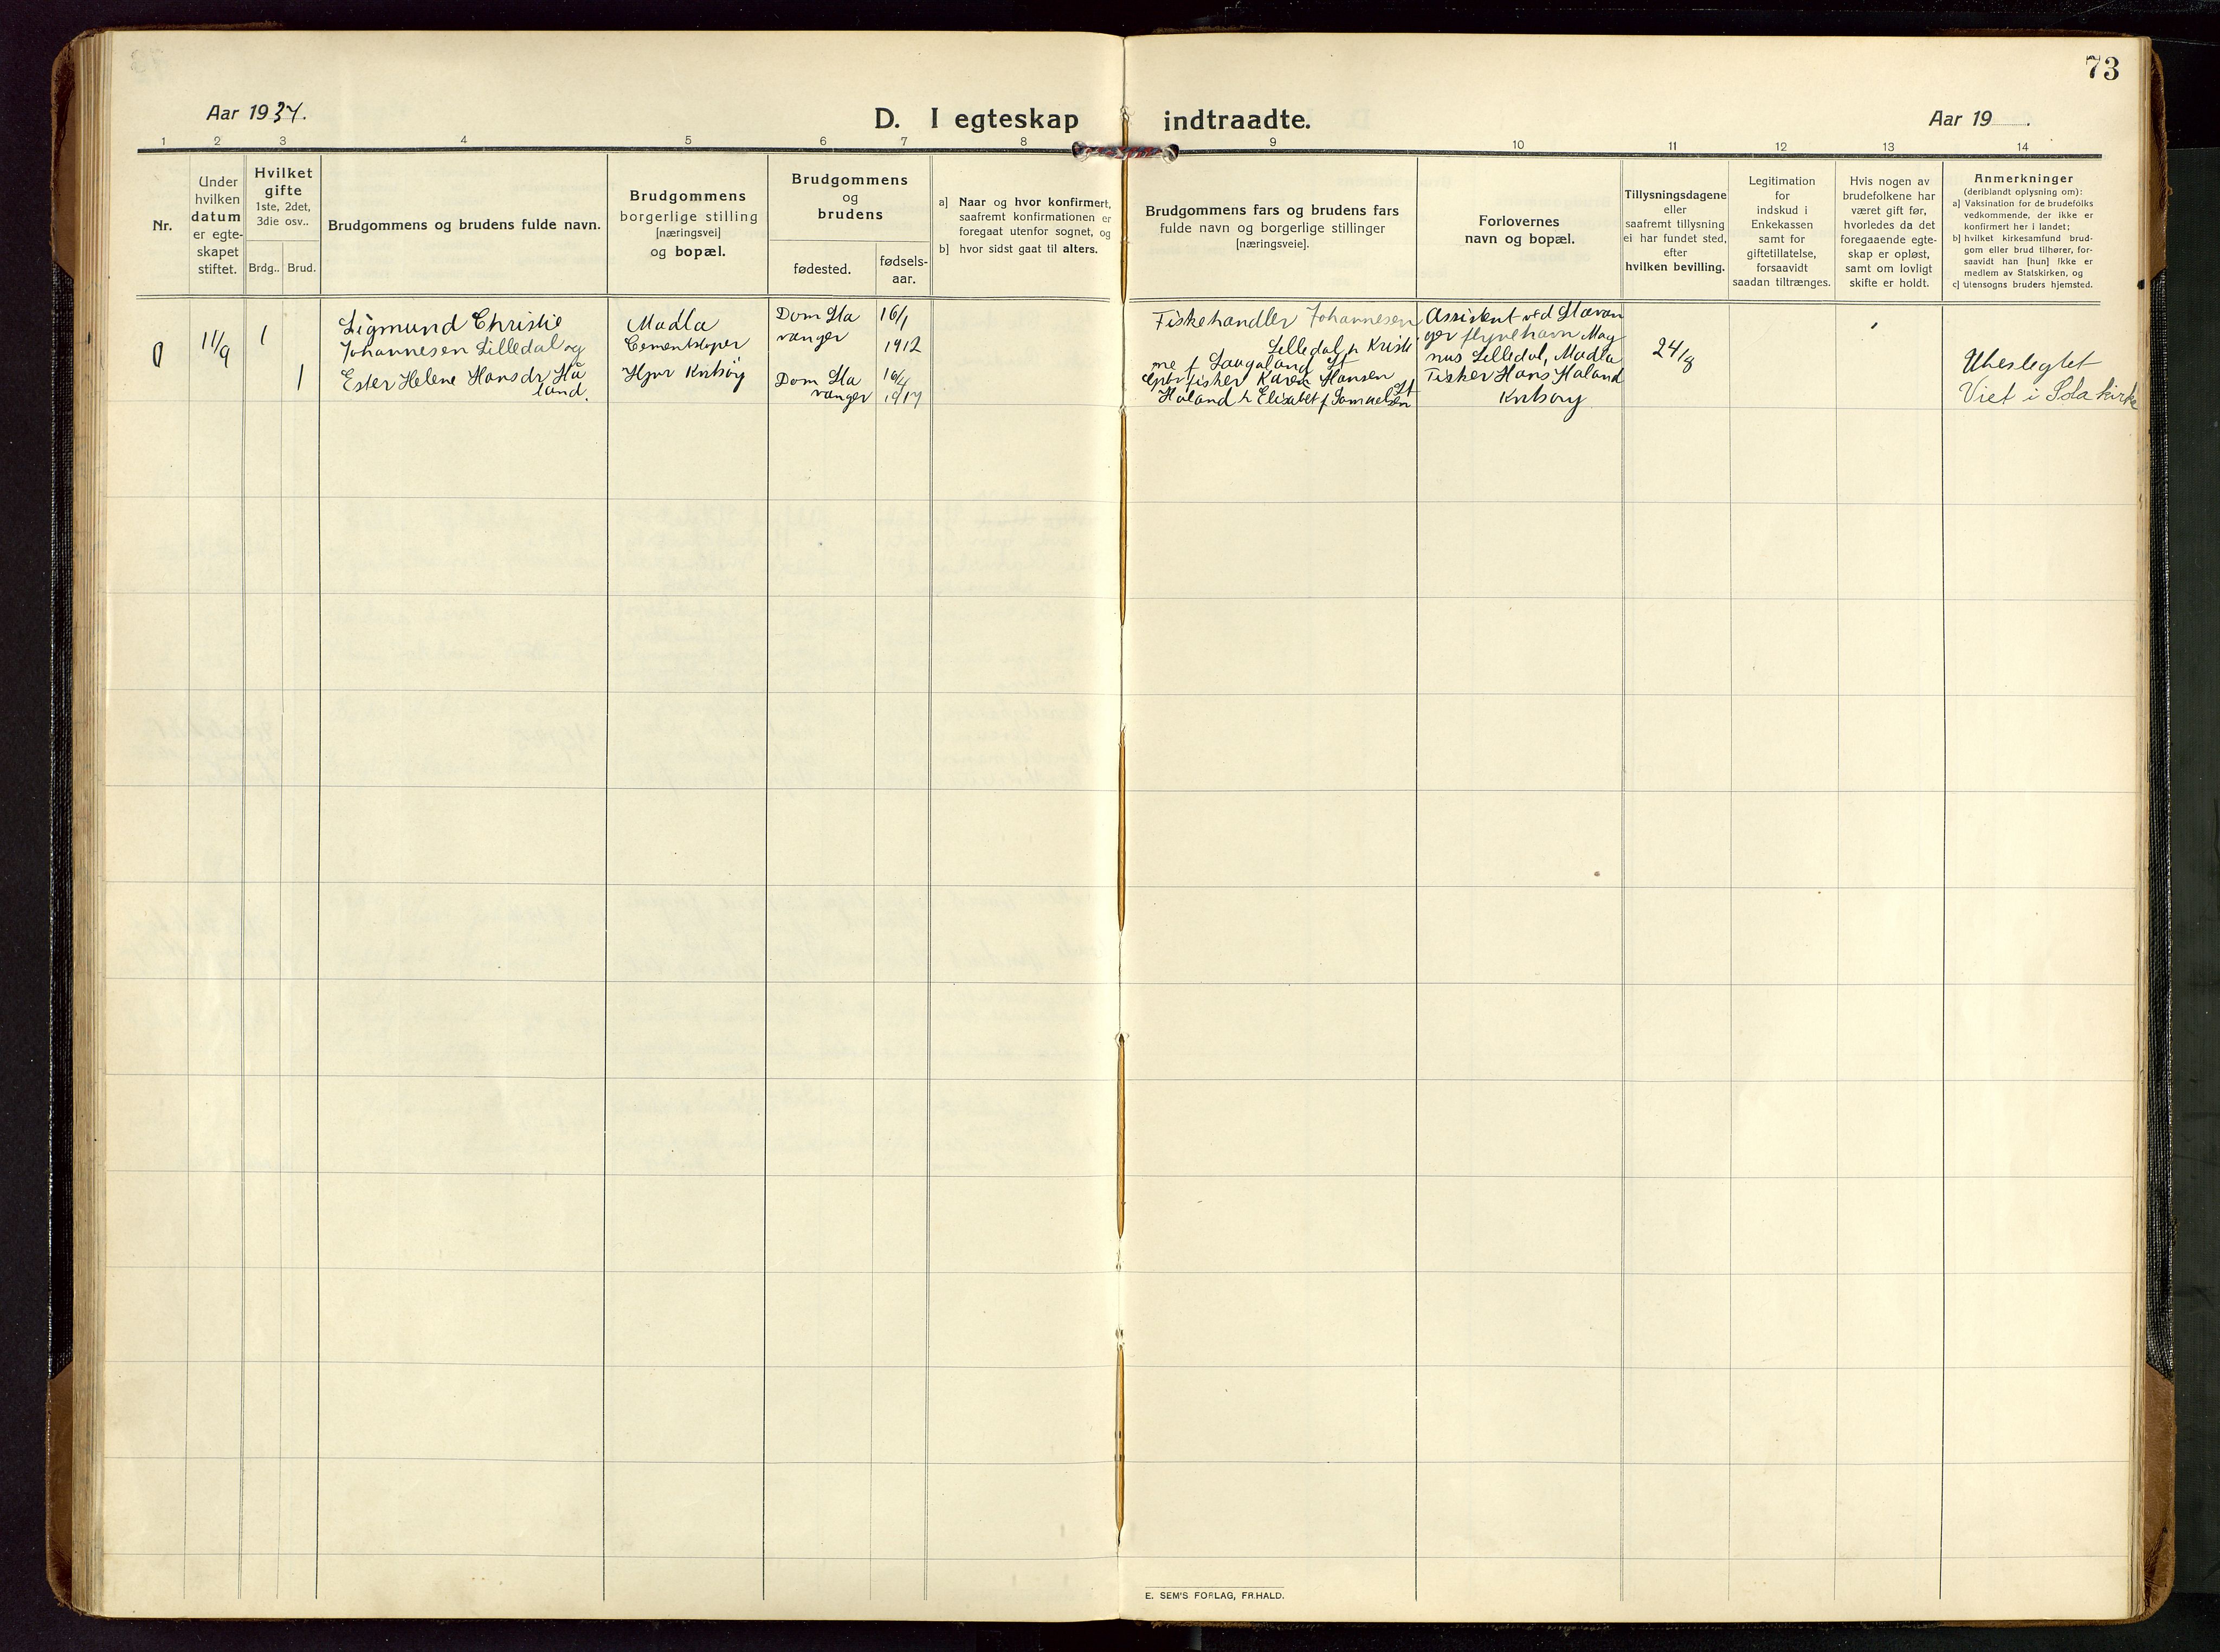 73
Aar 1937.
D. I egteskap indtraadte.
Aar 19 .
1 2 3 4 5 6 7 8 9 10 11 12 13 14
Nr.
Under
hvilken
datum
er egte-
skapet
stiftet.
Hvilket
gifte
1ste, 2det,
3die osv..
Brdg..
Brud.
Brudgommens og brudens fulde navn.
Brudgommens
borgerlige stilling
[næringsvei]
og bopæl.
Brudgommens
og
brudens
fødested.
fødsels-
aar.
a] Naar og hvor konfirmert,
saafremt konfirmationen er
foregaat utenfor sognet, og
b] hvor sidst gaat til alters.
Brudgommens fars og brudens fars
fulde navn og borgerlige stillinger
[næringsveie].
Forlovernes
navn og bopæl.
Tillysningsdagene
eller
saafremt tillysning
ei har fundet sted,
efter
hvilken bevilling.
Legitimation
for
indskud i
Enkekassen
samt for
giftetillatelse,
forsaavidt
saadan tiltrænges.
Hvis nogen av
brudefolkene har
været gift før,
hvorledes da det
foregaaende egte-
skap er opløst,
samt om lovligt
skifte er holdt.
Anmerkninger
(deriblandt oplysning om):
a] Vaksination for de brudefolks
vedkommende, der ikke er
konfirmert her i landet;
b] hvilket kirkesamfund brud-
gom eller brud tilhører, for-
saavidt han [hun] ikke er
medlem av Statskirken, og
c] utensogns bruders hjemsted.
0
11/9
1
1
Sigmund Christie
Johannesen Lilledal og
Ester Helene Hansdr Hå
land.
Madla
Cementstøper
Hjpr
Dom Sta
vanger
Dom Sta
vanger
16/1
1912
16/4
1917
Fiskehandler Johannesen
Lilledal h Kristi
ne f Laugaland St
fisker Karen Hansen
Håland h Elisabet f Samuelsen St
Assistent ved Stavan
ger flyvehavn Mag
nus Lilledal, Madla
Fisker Hans Håland
24/8
Ubeslegtet
Viet i Sola kirke
E. SEM'S FORLAG, FR.HALD.